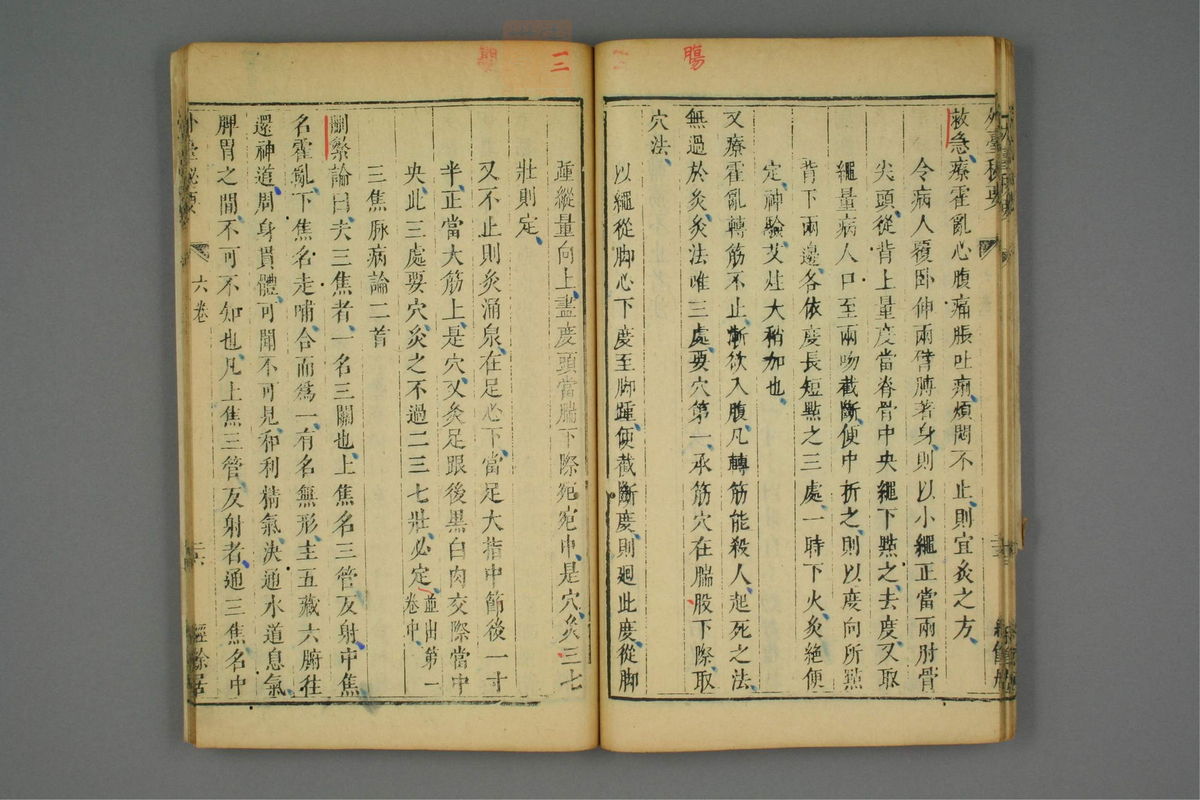 腸
三
外臺秘要
救急療霍亂心腹痛脹吐痢煩悶不止則宜灸之方
令病人覆臥伸兩臂膊著身則以小繩正當兩肘骨
尖頭從背上量度當脊骨中央繩下㸃之去度又取
繩量病人口至兩吻截斷便中折之則以度向所㸃
背下兩邊各依度長短㸃之三處一時下火灸絕便
定神驗艾炷大稍加也
又療霍亂轉筋不止漸欲入腹凡轉筋能殺人起死之法
無過於灸灸法唯三處要穴第一承筋穴在腨股下際取
穴法
以繩從脚心下度至脚踵便截斷度則廻此度從脚
踵縱量向上盡度頭當腨下際宛宛中是穴灸三七
壯則定
又不止則灸涌泉在足心下當足大指中節後一寸
半正當大筋上是穴又灸足跟後黑白肉交際當中
央此三處要穴灸之不過二三七壯必定並出第一卷中
三焦脉病論二首
刪繁論曰夫三焦者一名三關也上焦名三管反射中焦
名霍亂下焦名走哺合而爲一有名無形主五藏六腑往
還神道周身貫體可聞不可見和利精氣決通水道息氣
脾胃之間不可不知也凡上焦三管反射者通三焦名中
外臺秘要
六卷
二六
經餘居